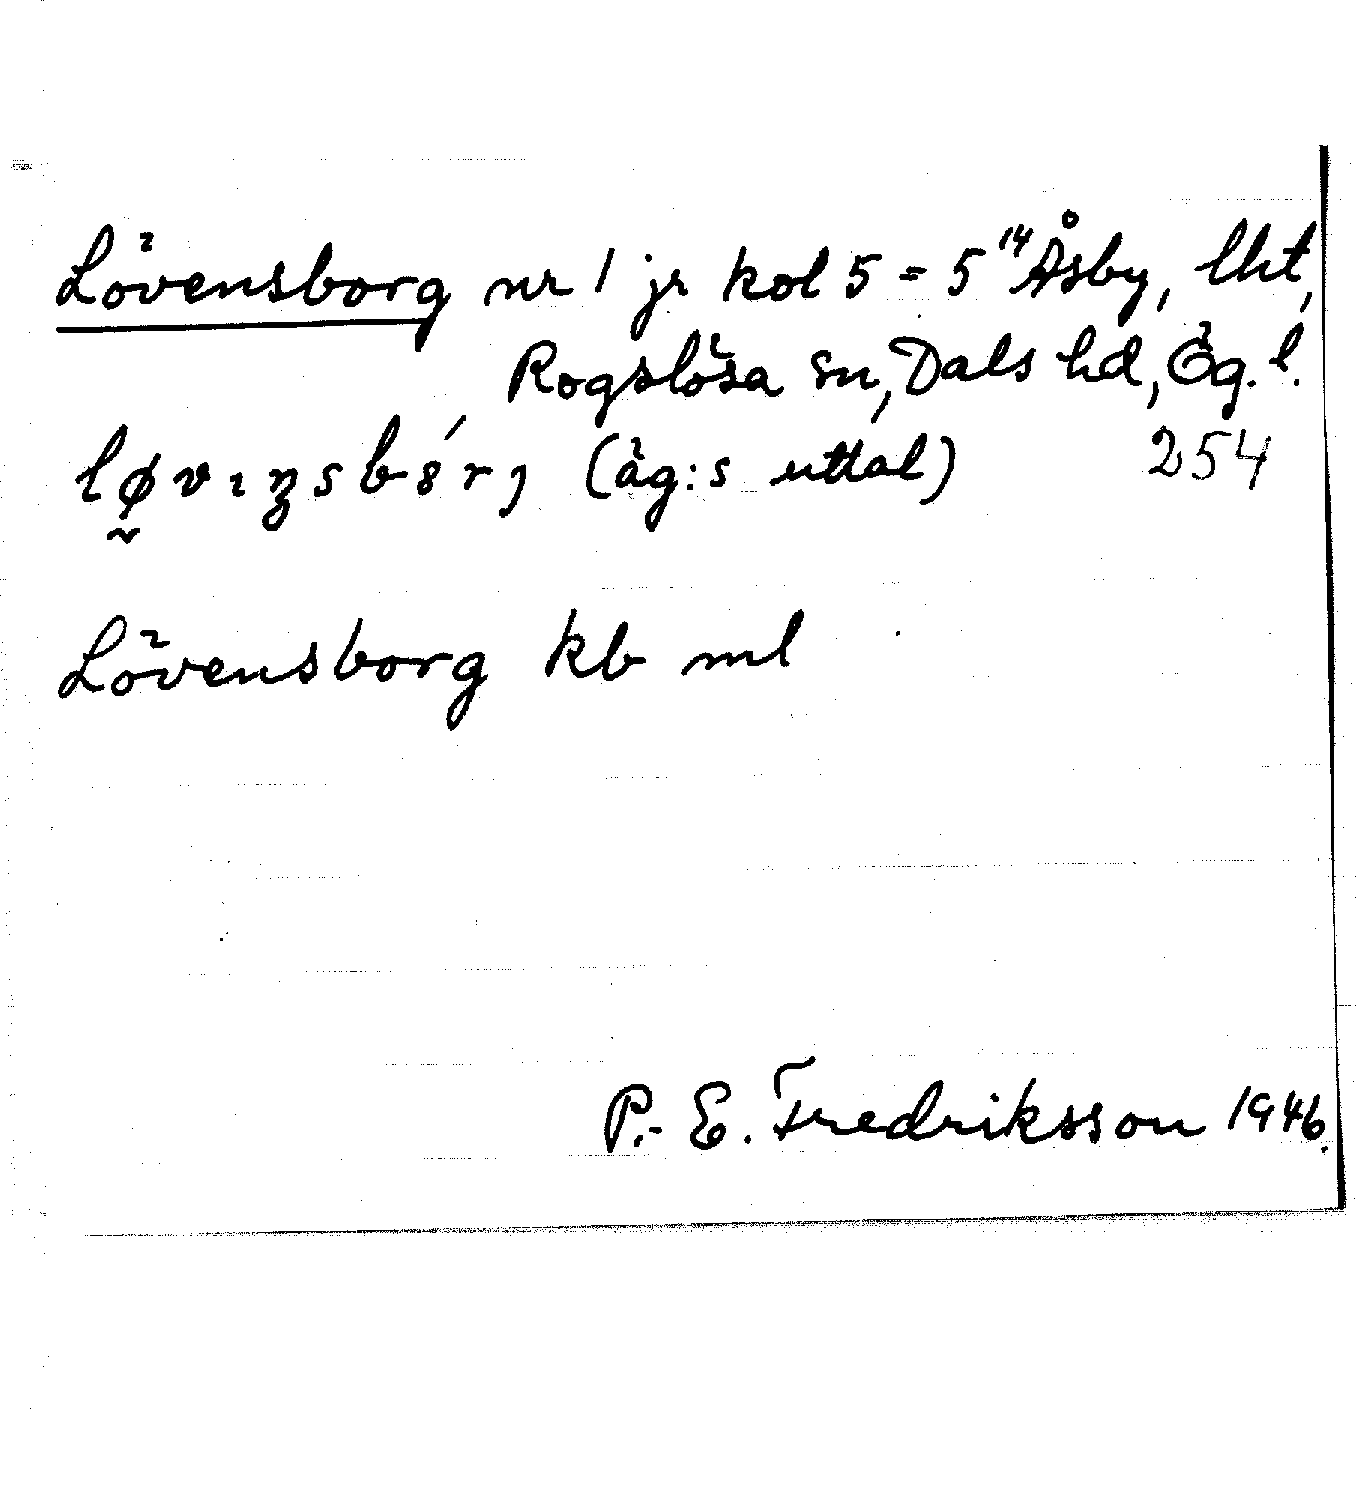 Lövensborg nr 1 jr kol 5 = 5¹⁴ Åsby, lht,
Rogslösa sn, Dals hd, Ög. l.
(äg:s uttal) 254
Lövensborg kb ml
P.-E. Fredriksson 1946.